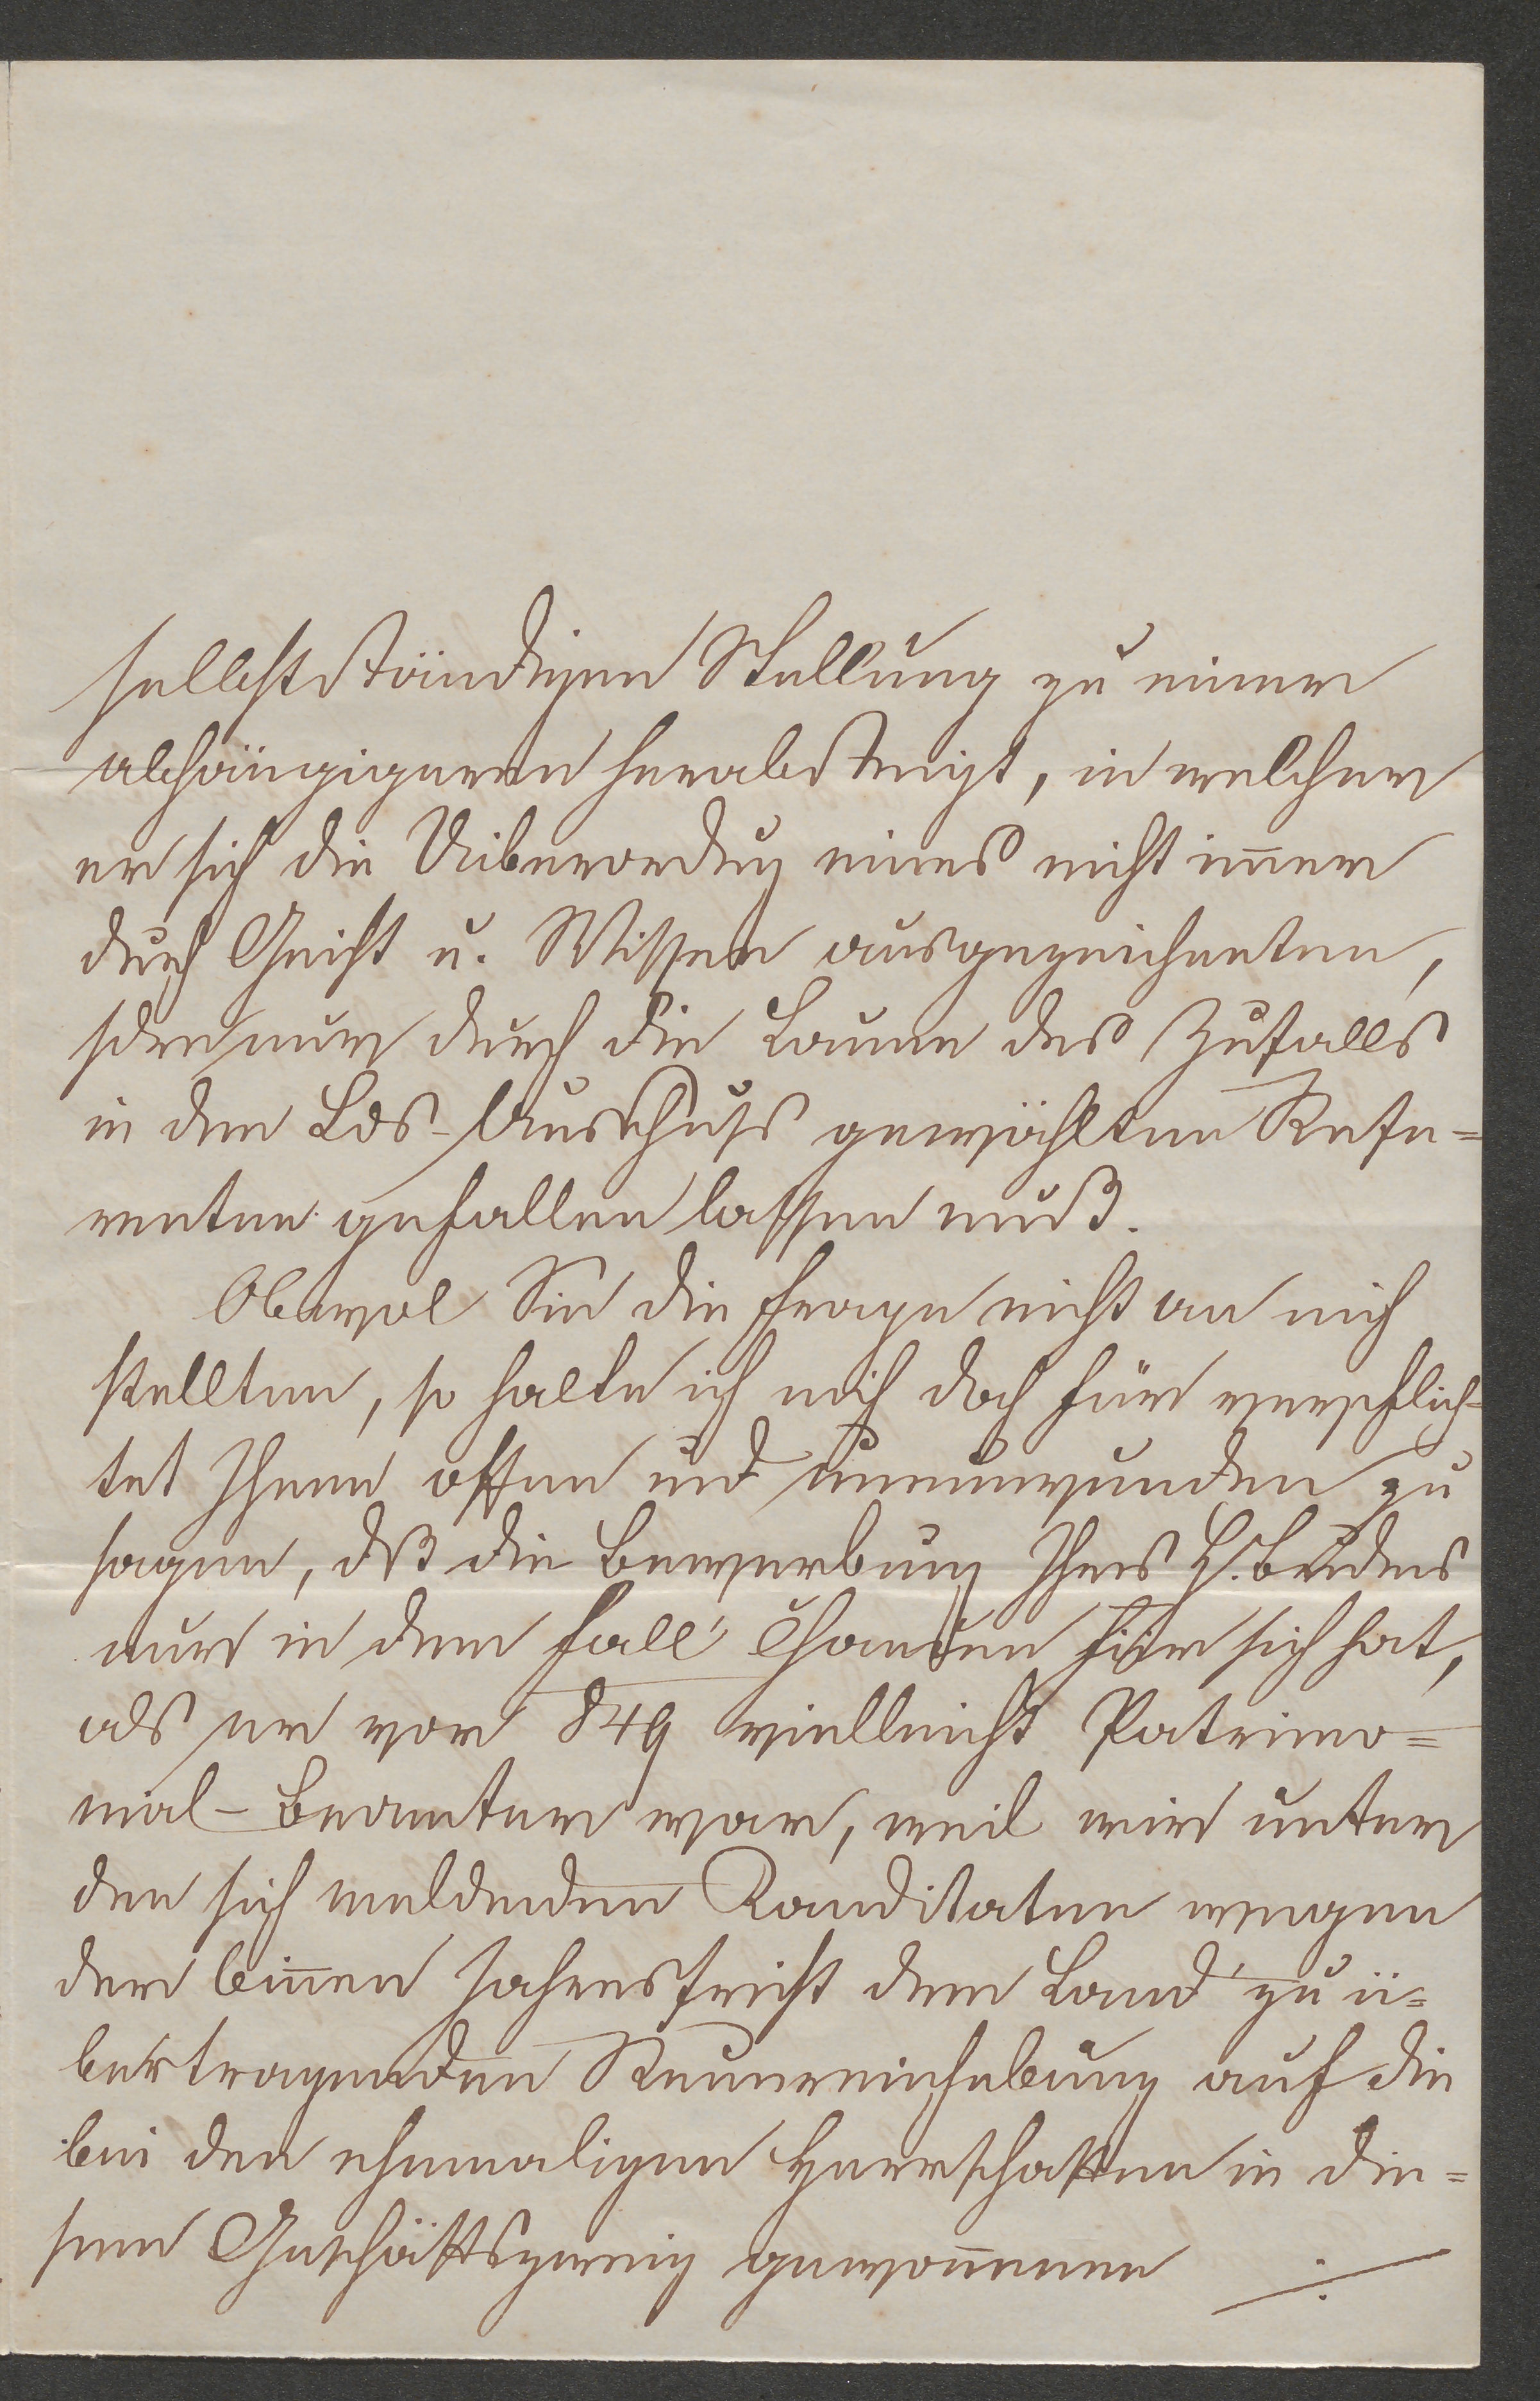 selbstständigen Stellung zu einer
abhängigeren herabsteigt, in welcher
er sich die Uiberordng eines nicht im̄er
durch Geist u. Wissen ausgezeichneten,
sdern nur durch die Laune des Zufalls
in den Lds-Ausschuss gewählten Refe=
renten gefallen lassen muß.
Obwol Sie die Frage nicht an mich
stellten, so halte ich mich doch für verpflich-
tet Ihnen offen und unumwunden zu
sagen, dß die Bewerbung Ihres H. Bruders
nur in dem Fall Chancen für sich hat,
als er vor 849 vielleicht Patrimo=
nial-Beamter war, weil wir unter
den sich meldenden Kandidaten wegen
der bin̄en Jahresfrist dem Land zu ü=
bertragenden Steuereinhebung auf die
bei den ehemaligen Herrschaften in die=
sem Geschäftszweig gewon̄enen ./.